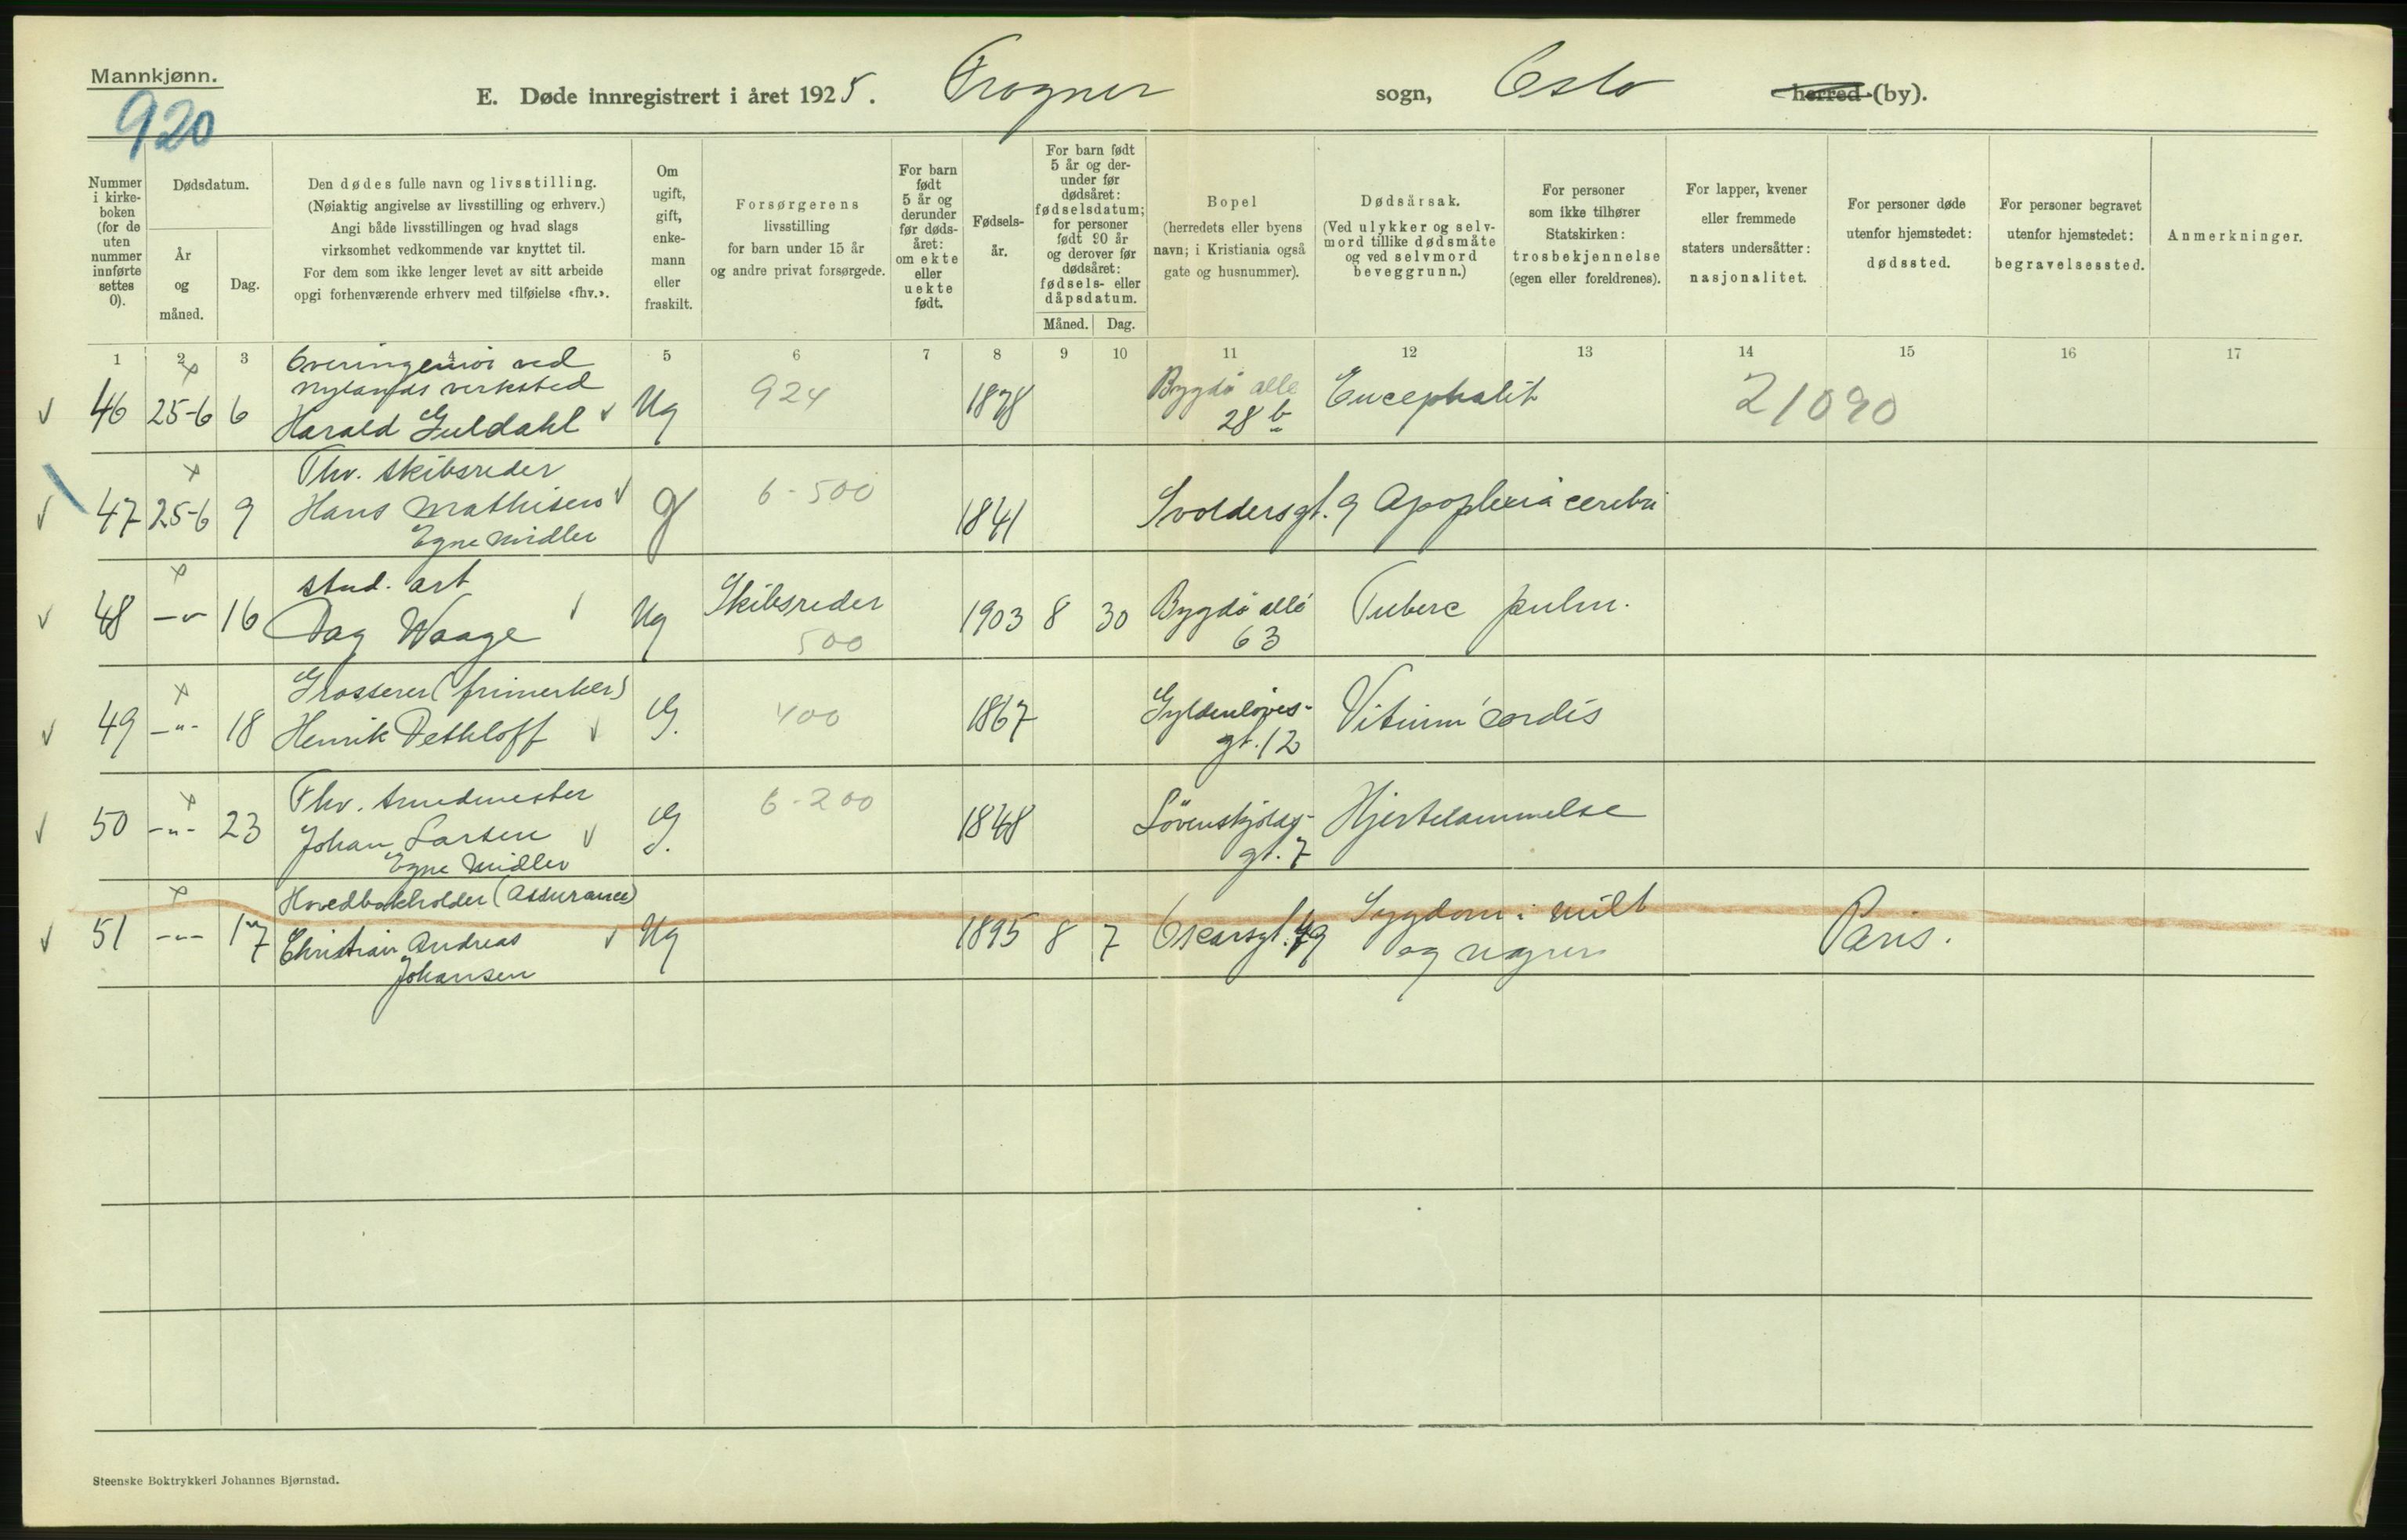 Mannkjønn.
920
E. Døde innregistrert i året 1925. Frogner sogn, Oslo herred (by).
Nummer i kirke-boken (for de uten nummer innførte settes 0).
Dødsdatum.
År og måned.
Dag.
Den dødes fulle navn og livsstilling.
(Nøiaktig angivelse av livsstilling og erhverv.)
Angi både livsstillingen og hvad slags
virksomhet vedkommende var knyttet til.
For dem som ikke lenger levet av sitt arbeide
opgi forhenværende erhverv med tilføielse «fhv.».
Om ugift, gift, enke-mann eller fraskilt.
Forsørgerens
livsstilling
for barn under 15 år
og andre privat forsørgede.
For barn født 5 år og derunder før døds-året: om ekte eller uekte født.
Fødsels-år.
For barn født 5 år og der-under før dødsåret: fødselsdatum; for personer født 90 år og derover før dødsåret: fødsels- eller dåpsdatum.
Måned.
Dag.
Bopel
(herredets eller byens
navn; i Kristiania også
gate og husnummer).
Dødsårsak.
(Ved ulykker og selv-
mord tillike dødsmåte
og ved selvmord
beveggrunn.)
For personer
som ikke tilhører
Statskirken:
trosbekjennelse
(egen eller foreldrenes).
For lapper, kvener
eller fremmede
staters undersåtter:
nasjonalitet.
For personer døde
utenfor hjemstedet:
dødssted.
For personer begravet
utenfor hjemstedet:
begravelsessted.
Anmerkninger.
1 2 3 4 5 6 7 8 9 10 11 12 13 14 15 16 17
Overingeniør ved
Nylands verksted
46 25-6 6 Harald Guldahl Ug 924 1878 Bygdø alle 28 b Encephalit 21090
Fhv. skibsreder
47 25-6 9 Hans Mathisen G 6-500 1841 Svoldersgt. 9 Apoplexia cerebri
Egne midler
stud. art
48 -"- 16 Dag Waage Ug Skibsreder 500 1903 8 30 Bygdø allé 63 Tuberc pulm.
Grosserer (frimerker)
49 -"- 18 Henrik Dethloff G. 400 1867 Gyldenløves-gt. 12 Vitium cordis
Fhv. smedmester
50 -"- 23 Johan Larsen G. 6-200 1848 Løvenskjolds-gt. 7 Hjertelammelse
Egne Midler
Hovedbokholder (Assurance)
51 -"- 17 Christian Andreas Ug 1895 8 7 Oscarsgt. 49 Sygdom i milt og nyrer Paris.
Johansen
Steenske Boktrykkeri Johannes Bjørnstad.